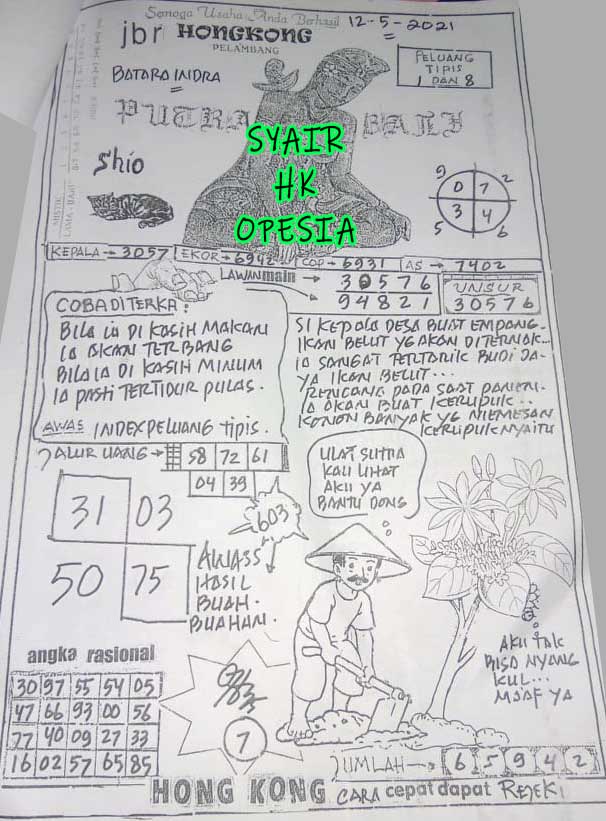 Semoga Usaha Anda Berhasil
12-5-2021
jbr HONGKONG
PELAMBANG
BATARA INDRA
PELUANG
TIPIS
1 DAN 8
PUTRA BALI
SYAIR
HK
OPESIA
Shio
9 2
0 7
3 4
5 6
KEPALA → 3057
EKOR → 6942
COP → 6931
AS → 7402
LAWAN main → 30576
94821
UNSUR
30576
COBA DITERKA:
BILA IA DI KASIH MAKAN
IA AKAN TERBANG
BILA IA DI KASIH MINUM
IA PASTI TERTIDUR PULAS.
AWAS INDEX PELUANG TIPIS.
SI KEPALA DESA BUAT EMPANG.
IKAN BELUT YG AKAN DITERNAK...
IA SANGAT TERTARIK BUDI DA-
YA IKAN BELUT...
RENCANA PADA SAAT PANEN.
IA AKAN BUAT KERUPUK...
KONON BANYAK YG MEMESAN
KERUPUKNYA ITU
JALUR UANG → 58 72 61
04 39
603
ULAT SUTRA
KAU LIHAT
AKU YA
BANTU DONG
31 03
50 75
AWASS
HASIL
BUAH-
BUAHAN.
AKU TAK
BISA NYANG
KUL...
MAAF YA
angka rasional
30 97 55 54 05
47 66 93 00 56
77 40 09 27 33
16 02 57 65 85
7
JUMLAH → 6 5 9 4 2
HONG KONG CARA cepat dapat REJEKI